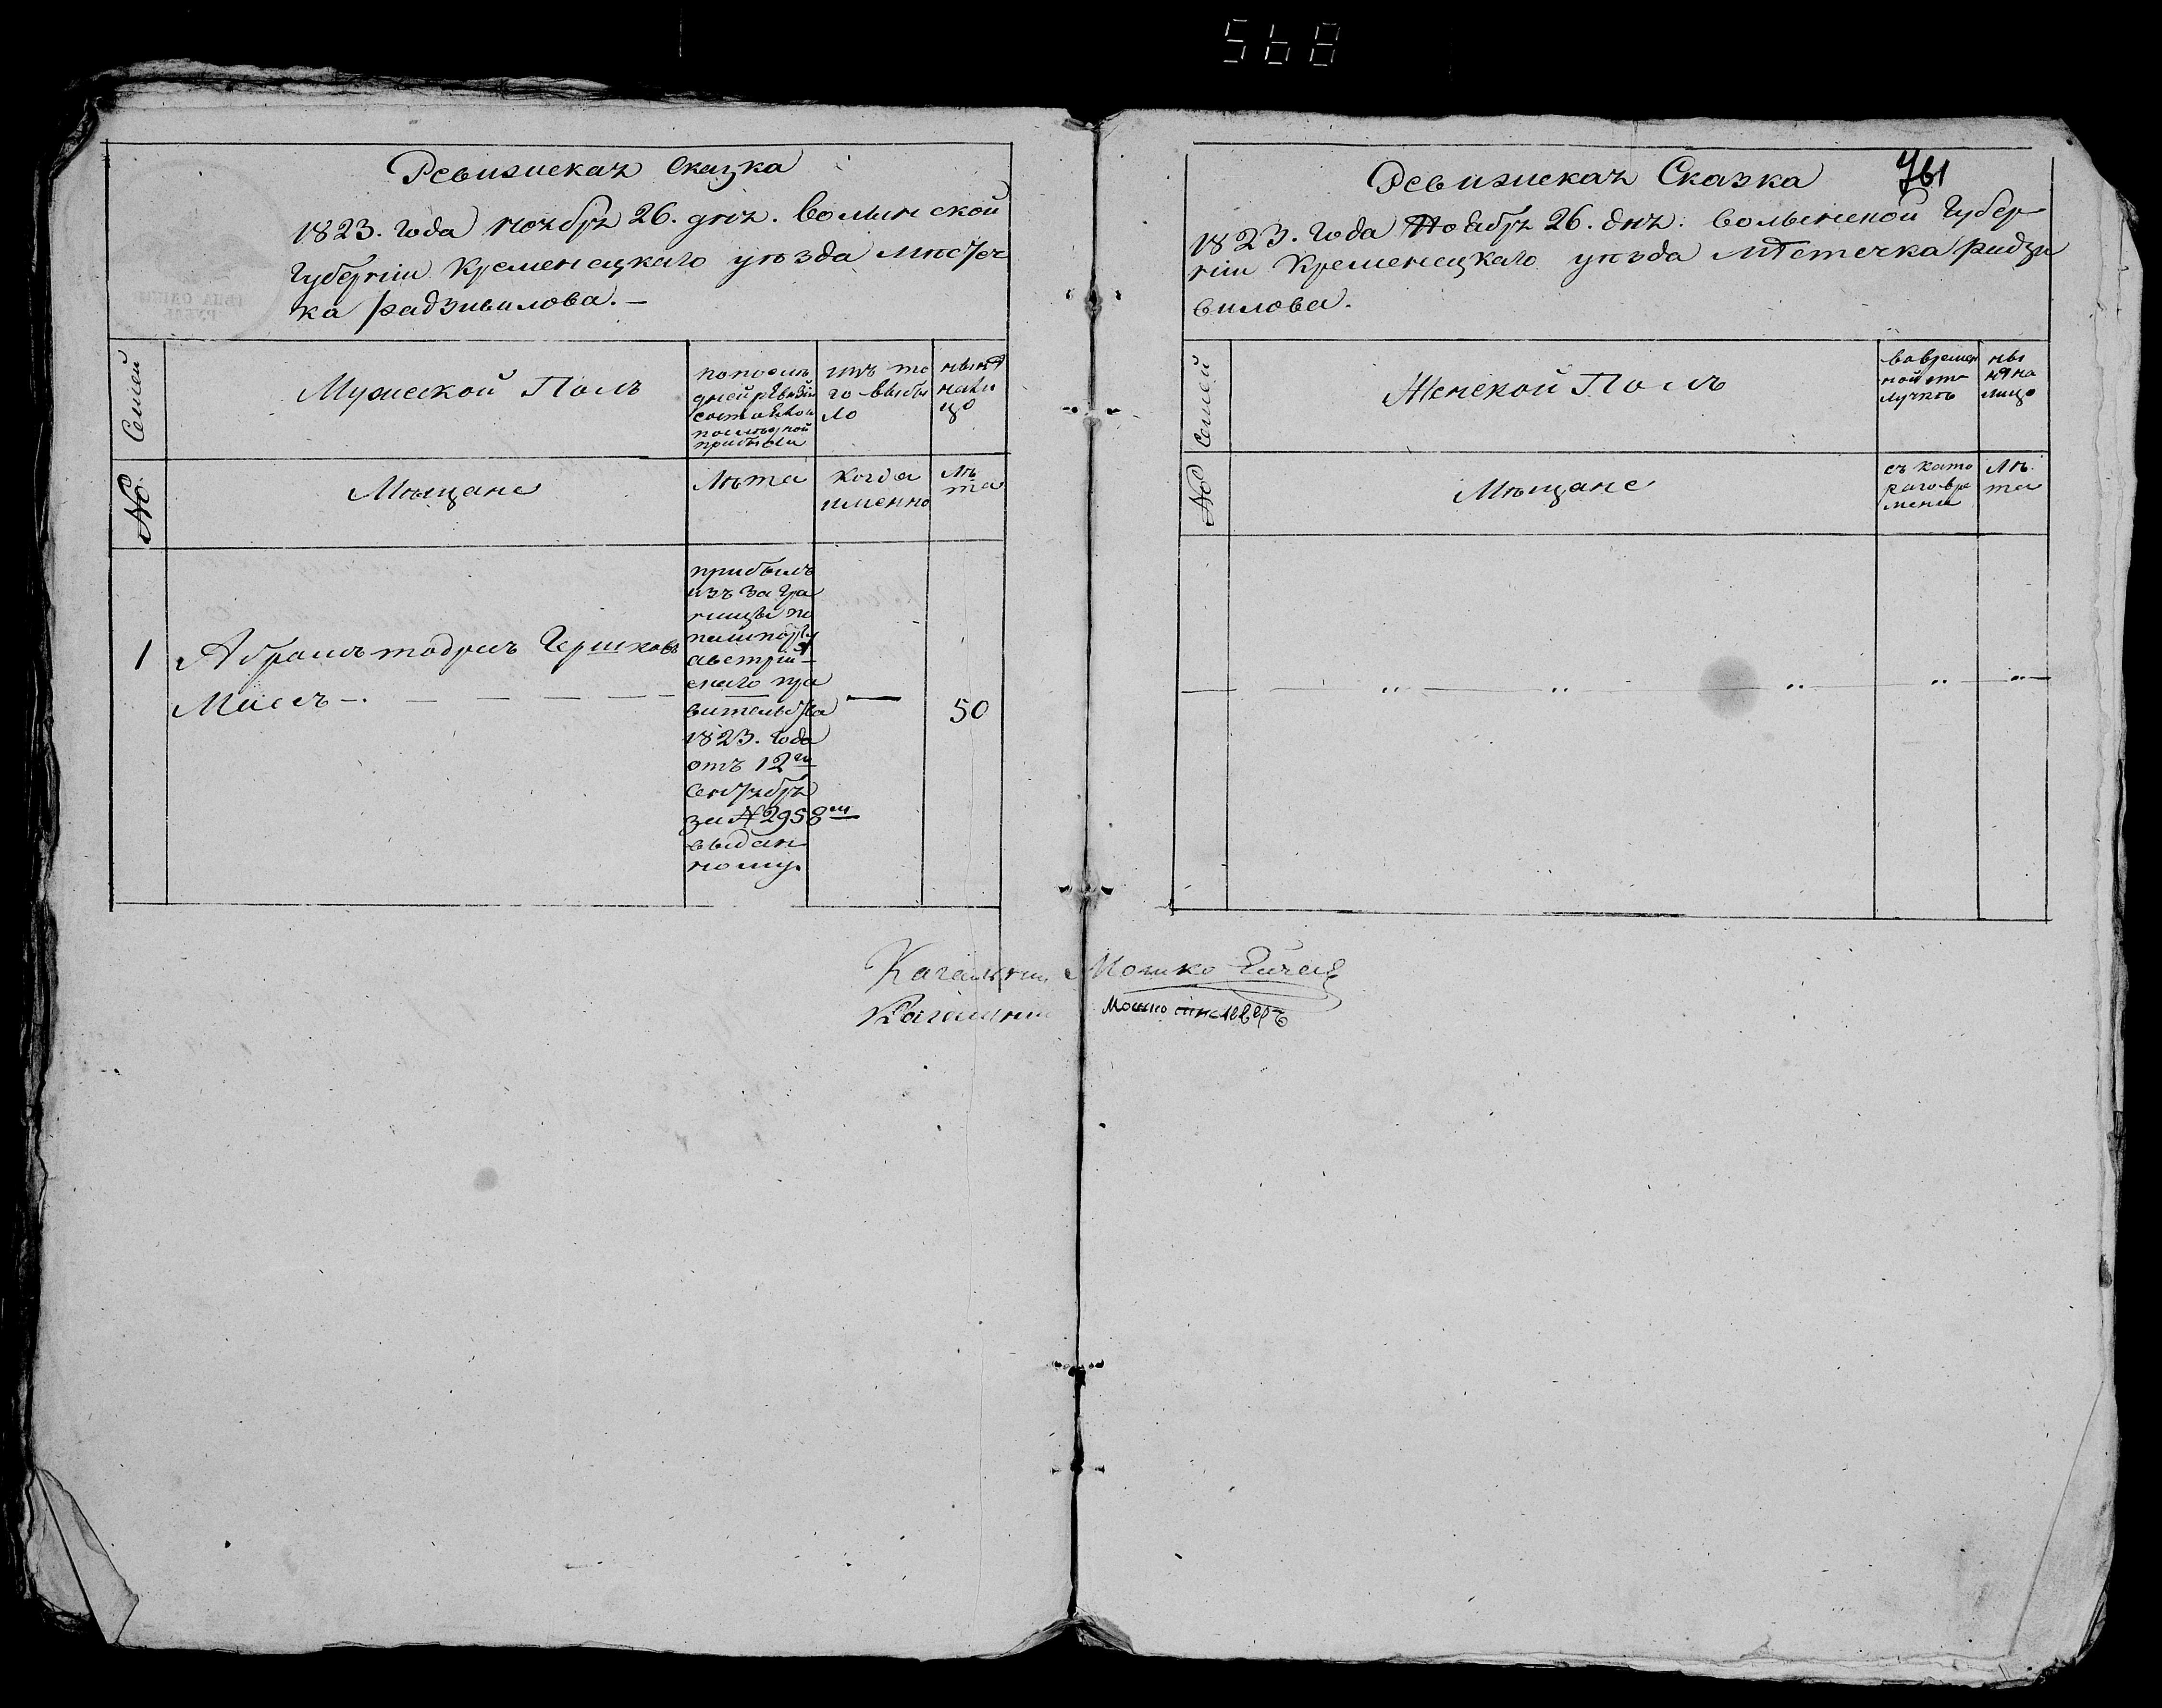 568
Ревизиская Сказка
1823. года ноября 26. дня. волынской
Губерніи Кременецкаго уѣзда мѣстеч
ка радзивилова. —
Семей
Мужеской Полъ
по послѣ
дней ревизіи
состояло и
послѣ оной
прибыли
изъ то
го выбы
ло
нынѣ
нали
цо
№
Мѣщане
Лѣта
когда
именно
Лѣ
та
1
Абрамъ Гершковъ
50
прибылъ
изъ за гра
ницы по
пашпорту
австрій
скаго пра
вительства
1823. года
отъ 12го
сентября
за №2958м
выдан
ному.
Ревизиская Сказка
761
1823. года Ноября 26. дня. волынской Губер
ніи Кременецкаго уѣзда мѣстечка радзи
вилова.
Семей
Женской Полъ
во времен
ной отлучкѣ
ны
нѣ на
лицо
№
Мѣщане
съ като
раго вре
мени
Лѣ
та
Кагальный Мошко
Кагальный Мошко